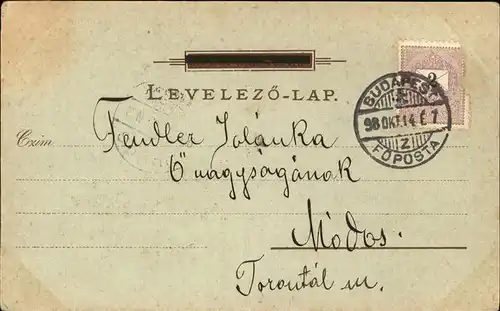 LEVELEZŐ-LAP.
2
BUDAPEST
98 OKT. 14 E 7
Z
FŐPOSTA
Czim
Fendler Jolánka
Ő nagyságának
Módos.
Torontál m.